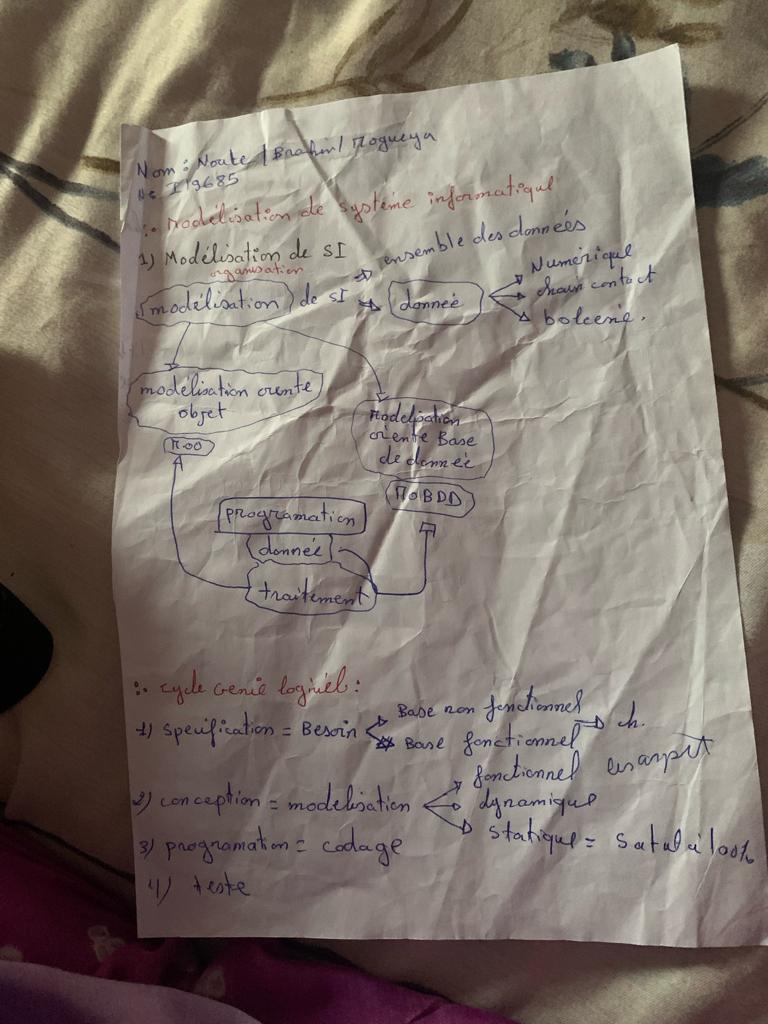 Nom : Noute / Brahim / Mogueya
N° I19685
∴ Modélisation de système informatique
1) Modélisation de SI → ensemble des données
organisation
modélisation de SI → donnée
Numérique
chain
bolceene.
modélisation oriente
objet
MOO
Modélisation
oriente Base
de donnée
MOBDD
programation
donnée
traitement
∴ cycle Genie logiciel :
1) specification = Besoin
Base non fonctionnel → ch.
Base fonctionnel
2) conception = modelisation
fonctionnel
dynamique
statique =
3) programation = codage
4) teste